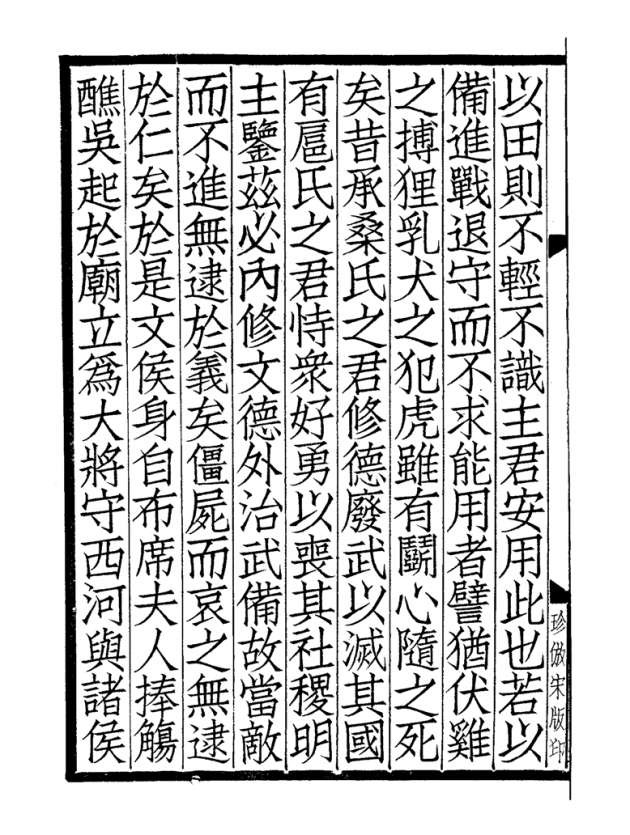 以田則不輕不識主君安用此也若以
備進戰退守而不求能用者譬猶伏雞
之搏狸乳犬之犯虎雖有鬭心隨之死
矣昔承桑氏之君修德廢武以滅其國
有扈氏之君恃衆好勇以喪其社稷明
主鑒茲必內修文德外治武備故當敵
而不進無逮於義矣僵屍而哀之無逮
於仁矣於是文侯身自布席夫人捧觴
醮吳起於廟立爲大將守西河與諸侯
珍倣宋版印